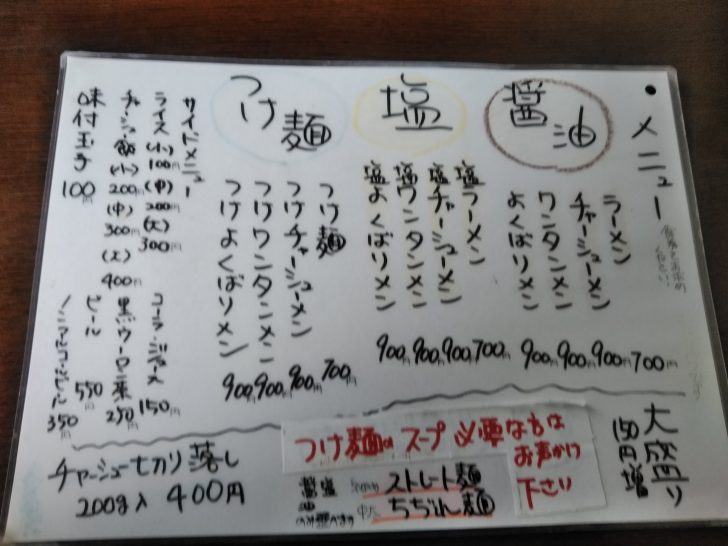 メニュー
醤油
ラーメン 700円
チャーシューメン 900円
ワンタンメン 900円
よくばりメン 900円
塩
塩ラーメン 700円
塩チャーシューメン 900円
塩ワンタンメン 900円
塩よくばりメン 900円
つけ麺
つけ麺 700円
つけチャーシューメン 900円
つけワンタンメン 900円
つけよくばりメン 900円
サイドメニュー
ライス(小)100円
(中)200円
(大)300円
チャーシュー飯(小)200円
(中)300円
(大)400円
味付玉子 100円
コーラ 150円
黒ウーロン茶 250円
ビール 550円
ノンアルコールビール 350円
大盛り
150円増
つけ麺はスープ必要な方は
お声かけ
下さい
醤油
塩
ストレート麺
ちぢれ麺
チャーシュー切り落し
200g入 400円